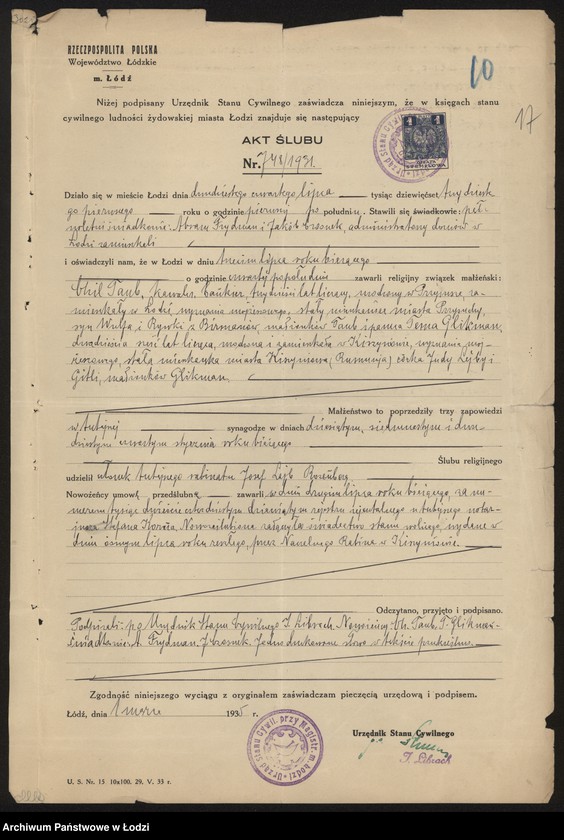 RZECZPOSPOLITA POLSKA
Województwo Łódzkie
m. Łódź
10
17
Niżej podpisany Urzędnik Stanu Cywilnego zaświadcza niniejszym, że w księgach stanu
cywilnego ludności żydowskiej miasta Łodzi znajduje się następujący
AKT ŚLUBU
Nr. 748/1931.
Działo się w mieście Łodzi dnia dwudziestego czwartego lipca tysiąc dziewięćset trzydziest
go pierwszego roku o godzinie pierwszej po południu. Stawili się świadkowie: peł-
noletni świadkowie: Abram Frydman i Jakób Czosnek, administratorzy domów w
Łodzi zamieszkali
i oświadczyli nam, że w Łodzi w dniu trzecim lipca roku bieżącego
o godzinie czwartej popołudniu zawarli religijny związek małżeński:
Chil Taub, kawaler, lat liczący, urodzony w za-
mieszkały w Łodzi, wyznania mojżeszowego, stały mieszkaniec miasta
syn Wulfa i z małżonków Taub i panna Tema Glikman,
dwadzieścia sześć lat licząca, urodzona i zamieszkała w Kiszyniowie, wyznania moj-
żeszowego, stała mieszkanka miasta Kiszyniowa (Rumunja) córka Judy Lejby i
Gitli, małżonków Glikman.
Małżeństwo to poprzedziły trzy zapowiedzi
w tutejszej synagodze w dniach dziesiątym, siedemnastym i dwu-
dziestym czwartym stycznia roku bieżącego
Ślubu religijnego
udzielił członek tutejszego rabinatu Josef Lejb
Nowożeńcy umowę przedślubną zawarli w dniu drugim lipca roku bieżącego, za nu-
merem tysiąc dziewiątym repertorjum tutejszego notar-
jusza Stefana Nowozaślubiona załączyła świadectwo stanu wolnego, wydane w
dniu ósmym lipca roku zeszłego, przez Naczelnego Rabina w Kiszyniowie.
Odczytano, przyjęto i podpisano.
Podpisali: p.o. Urzędnik Stanu Cywilnego I. Librach, Nowożeńcy: Ch. Taub, T. Glikman
świadkowie: A. Frydman, J. Czosnek. Jedno drukowane słowo w tekście przekreślono.
Zgodność niniejszego wyciągu z oryginałem zaświadczam pieczęcią urzędową i podpisem.
Łódź, dnia 1 marca 1935 r.
Urzędnik Stanu Cywilnego
I. Librach
U. S. Nr. 15 10x100. 29. V. 33 r.
Archiwum Państwowe w Łodzi